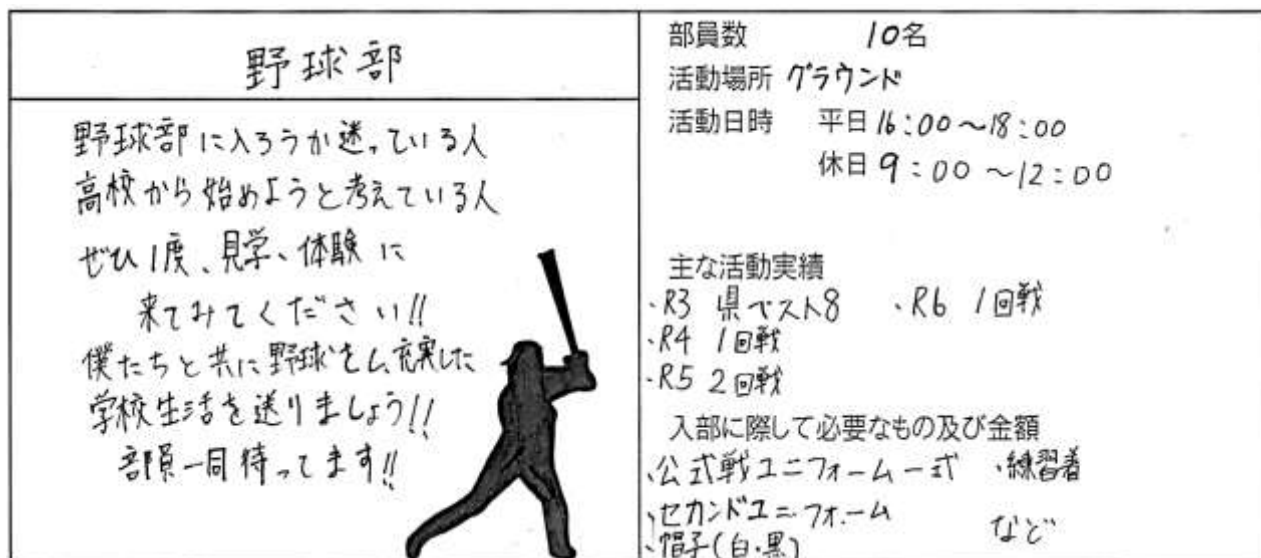 野球部
野球部に入ろうか迷っている人
高校から始めようと考えている人
ぜひ1度、見学、体験に
来てみてください!!
僕たちと共に野球をし、充実した
学校生活を送りましょう!!
部員一同待ってます!!
部員数 10名
活動場所 グラウンド
活動日時 平日 16:00～18:00
休日 9:00～12:00
主な活動実績
・R3 県ベスト8 ・R6 1回戦
・R4 1回戦
・R5 2回戦
入部に際して必要なもの及び金額
・公式戦ユニフォーム一式 ・練習着
・セカンドユニフォーム
・帽子(白・黒) など